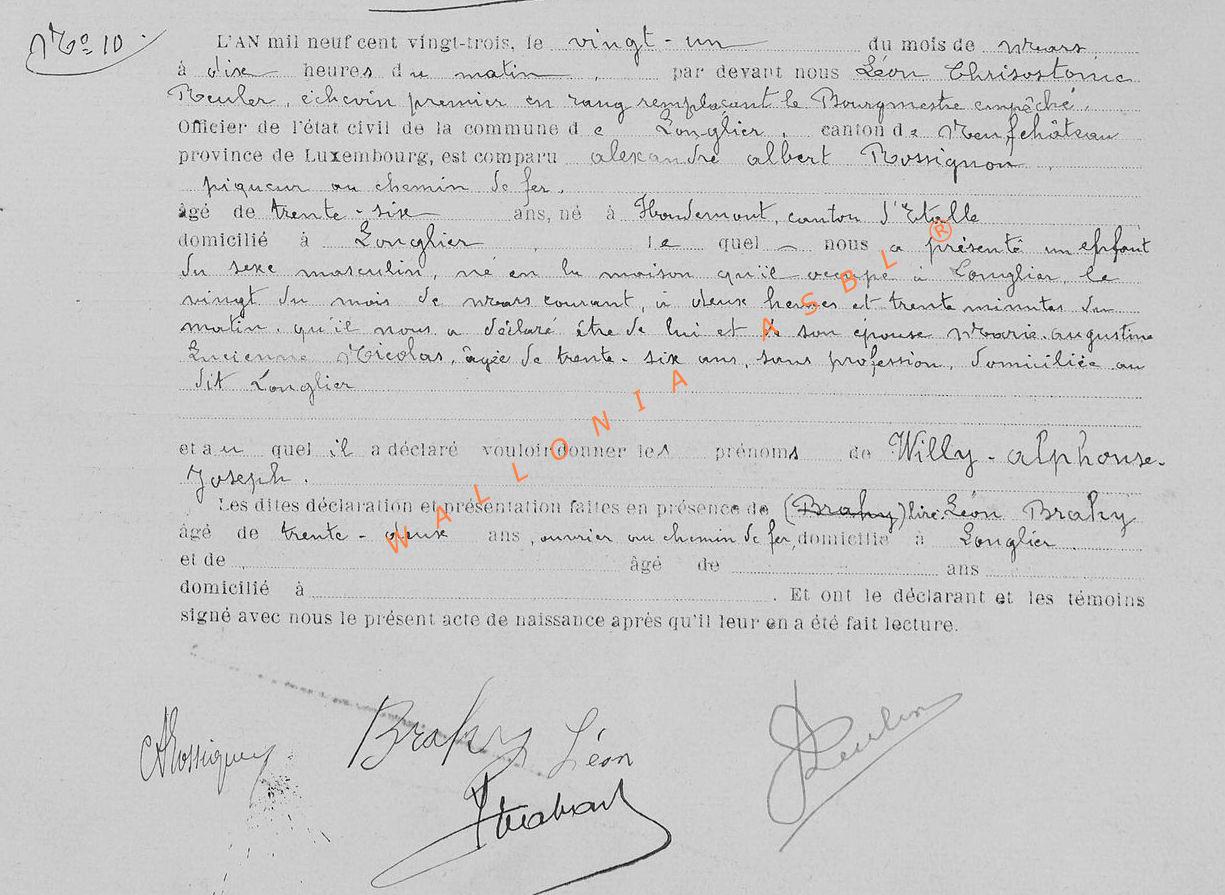 No 10
L'AN mil neuf cent vingt-trois, le vingt-un du mois de mars
à dix heures du matin, par devant nous Léon Chrisostome
Reuler, échevin premier en rang remplaçant le Bourgmestre empêché.
Officier de l'état civil de la commune de Longlier, canton de Neufchâteau
province de Luxembourg, est comparu alexandre albert Rossignon,
piqueur au chemin de fer,
âgé de trente-six ans, né à Houdemont, canton d'Etalle
domicilié à Longlier, lequel nous a présenté un enfant
du sexe masculin, né en la maison qu'il occupe à Longlier, le
vingt du mois de mars courant, à deux heures et trente minutes du
matin, qu'il nous a déclaré être de lui et de son épouse Marie-augustine
Lucienne Nicolas, âgée de trente-six ans, sans profession, domiciliée au
dit Longlier
et auquel il a déclaré vouloir donner les prénoms de Willy-alphonse-
Joseph.
Les dites déclaration et présentation faites en présence de (Brahy) lire: Léon Brahy
âgé de trente-deux ans, ouvrier au chemin de fer, domicilié à Longlier.
et de âgé de ans
domicilié à . Et ont le déclarant et les témoins
signé avec nous le présent acte de naissance après qu'il leur en a été fait lecture.
WALLONIA ASBL ®
ARossignon Brahy Léon